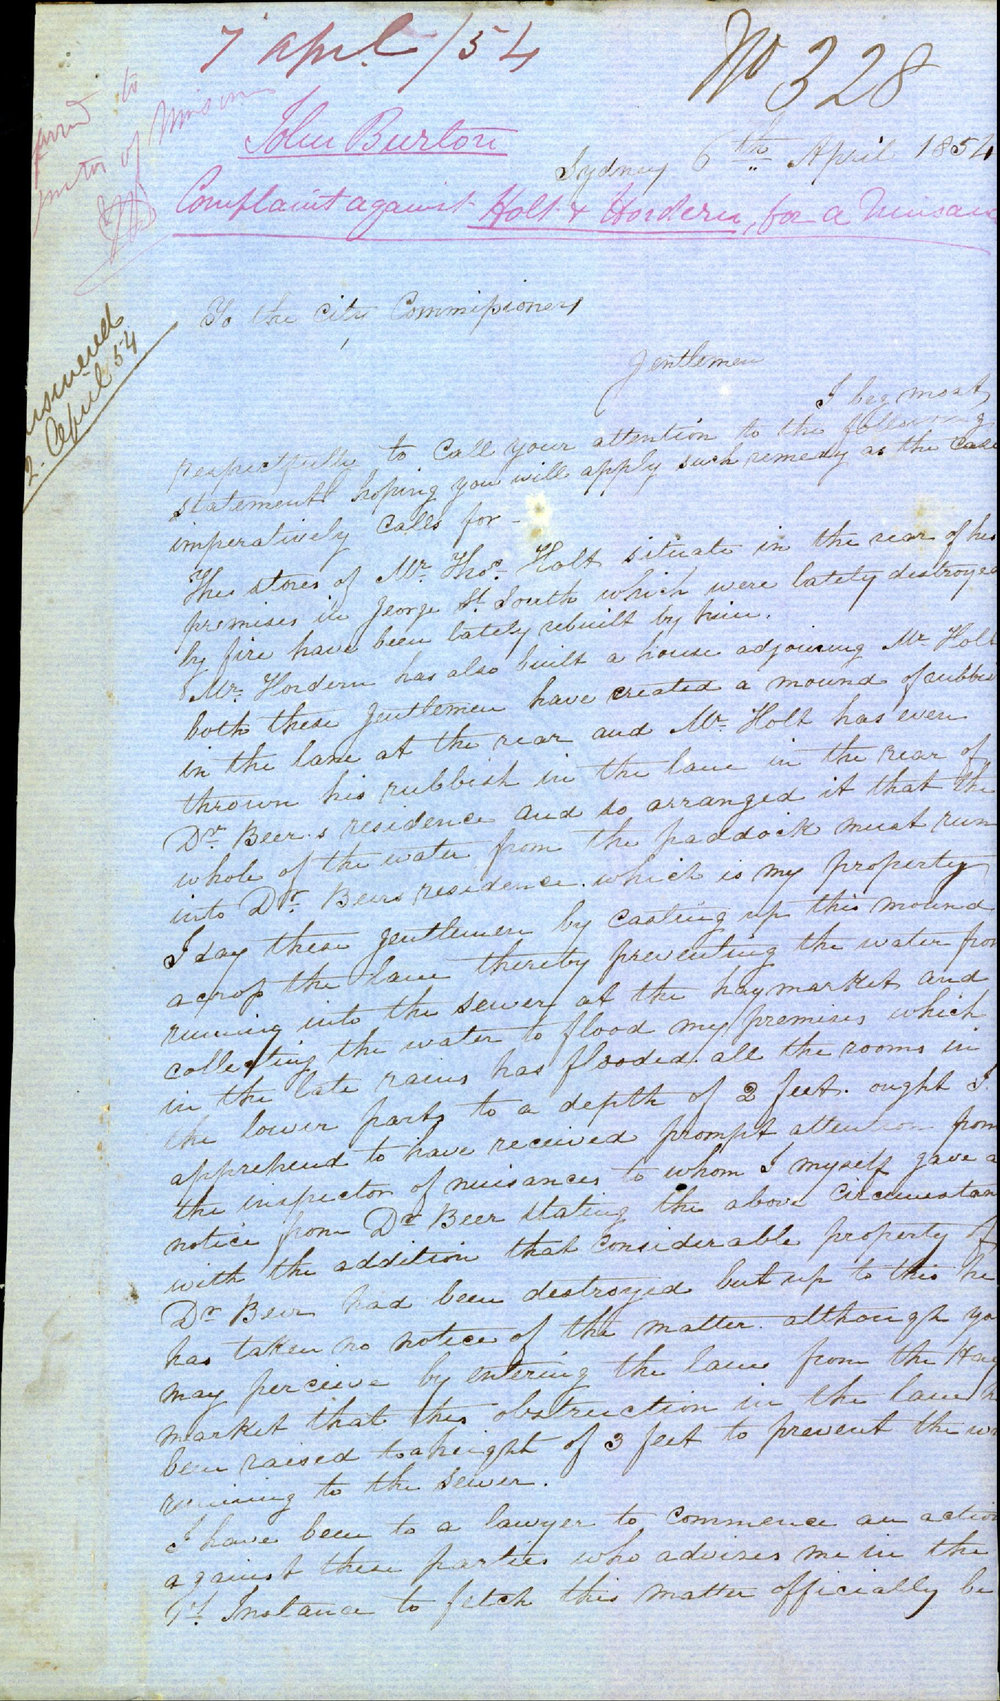 7 April /54
No 328
John Burton
Sydney 6th April 1854
Complaint against Holt & Hordern, for a Nuisanc
To the City Commissioners
Gentlemen
I beg most
respectfully to Call your attention to the following
statement hoping you will apply such remedy as the Case
imperatively Calls for -
The stores of Mr. Thos. Holt situate in the rear of his
premises in George St. South which were lately destroyed
by fire have been lately rebuilt by him.
Mr. Hordern has also built a house adjoining Mr. Holt
both these Gentlemen have created a mound of rubbis
in the lane at the rear and Mr. Holt has even
thrown his rubbish in the lane in the rear of
Dr. Beer's residence and so arranged it that the
whole of the water from the paddock must run
into Dr. Beers residence. which is my property
I say these Gentlemen by casting up this mound
across the lane thereby preventing the water from
running into the Sewer at the haymarket and
collecting the water to flood my premises which
in the late rains has flooded all the rooms in
the lower parts to a depth of 2 feet. ought I
apprehend to have received prompt attention from
the inspector of nuisances to whom I myself gave a
notice from Dr Beer stating the above Circumstan
with the addition that Considerable property of
Dr Beer had been destroyed but up to this he
has taken no notice of the matter. although yo
may perceive by entering the lane from the Hay
market that this obstruction in the lane h
been raised to a height of 3 feet to prevent the wa
running to the Sewer.
I have been to a lawyer to Commence an action
against these parties who advises me in the
1st. Instance to fetch this matter officially be
ferred to
pector of Nuisan
nswered
2. April 54